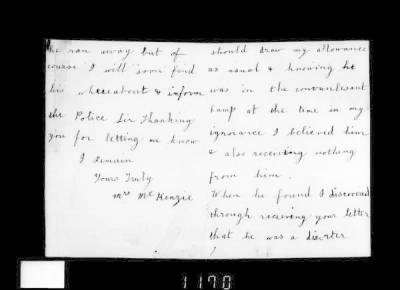 he ran away but of
course I will soon find
his whereabout & inform
the Police Sir Thanking
you for letting me know
I Remain
Yours Truly
Mrs McKenzie
should draw my allowance
as usual & knowing he
was in the convanlessant
Camp at the time in my
ignorance I believed him
& also receiving nothang
from him.
When he found I discovered
through receiving your letter
that he was a diserter
1170